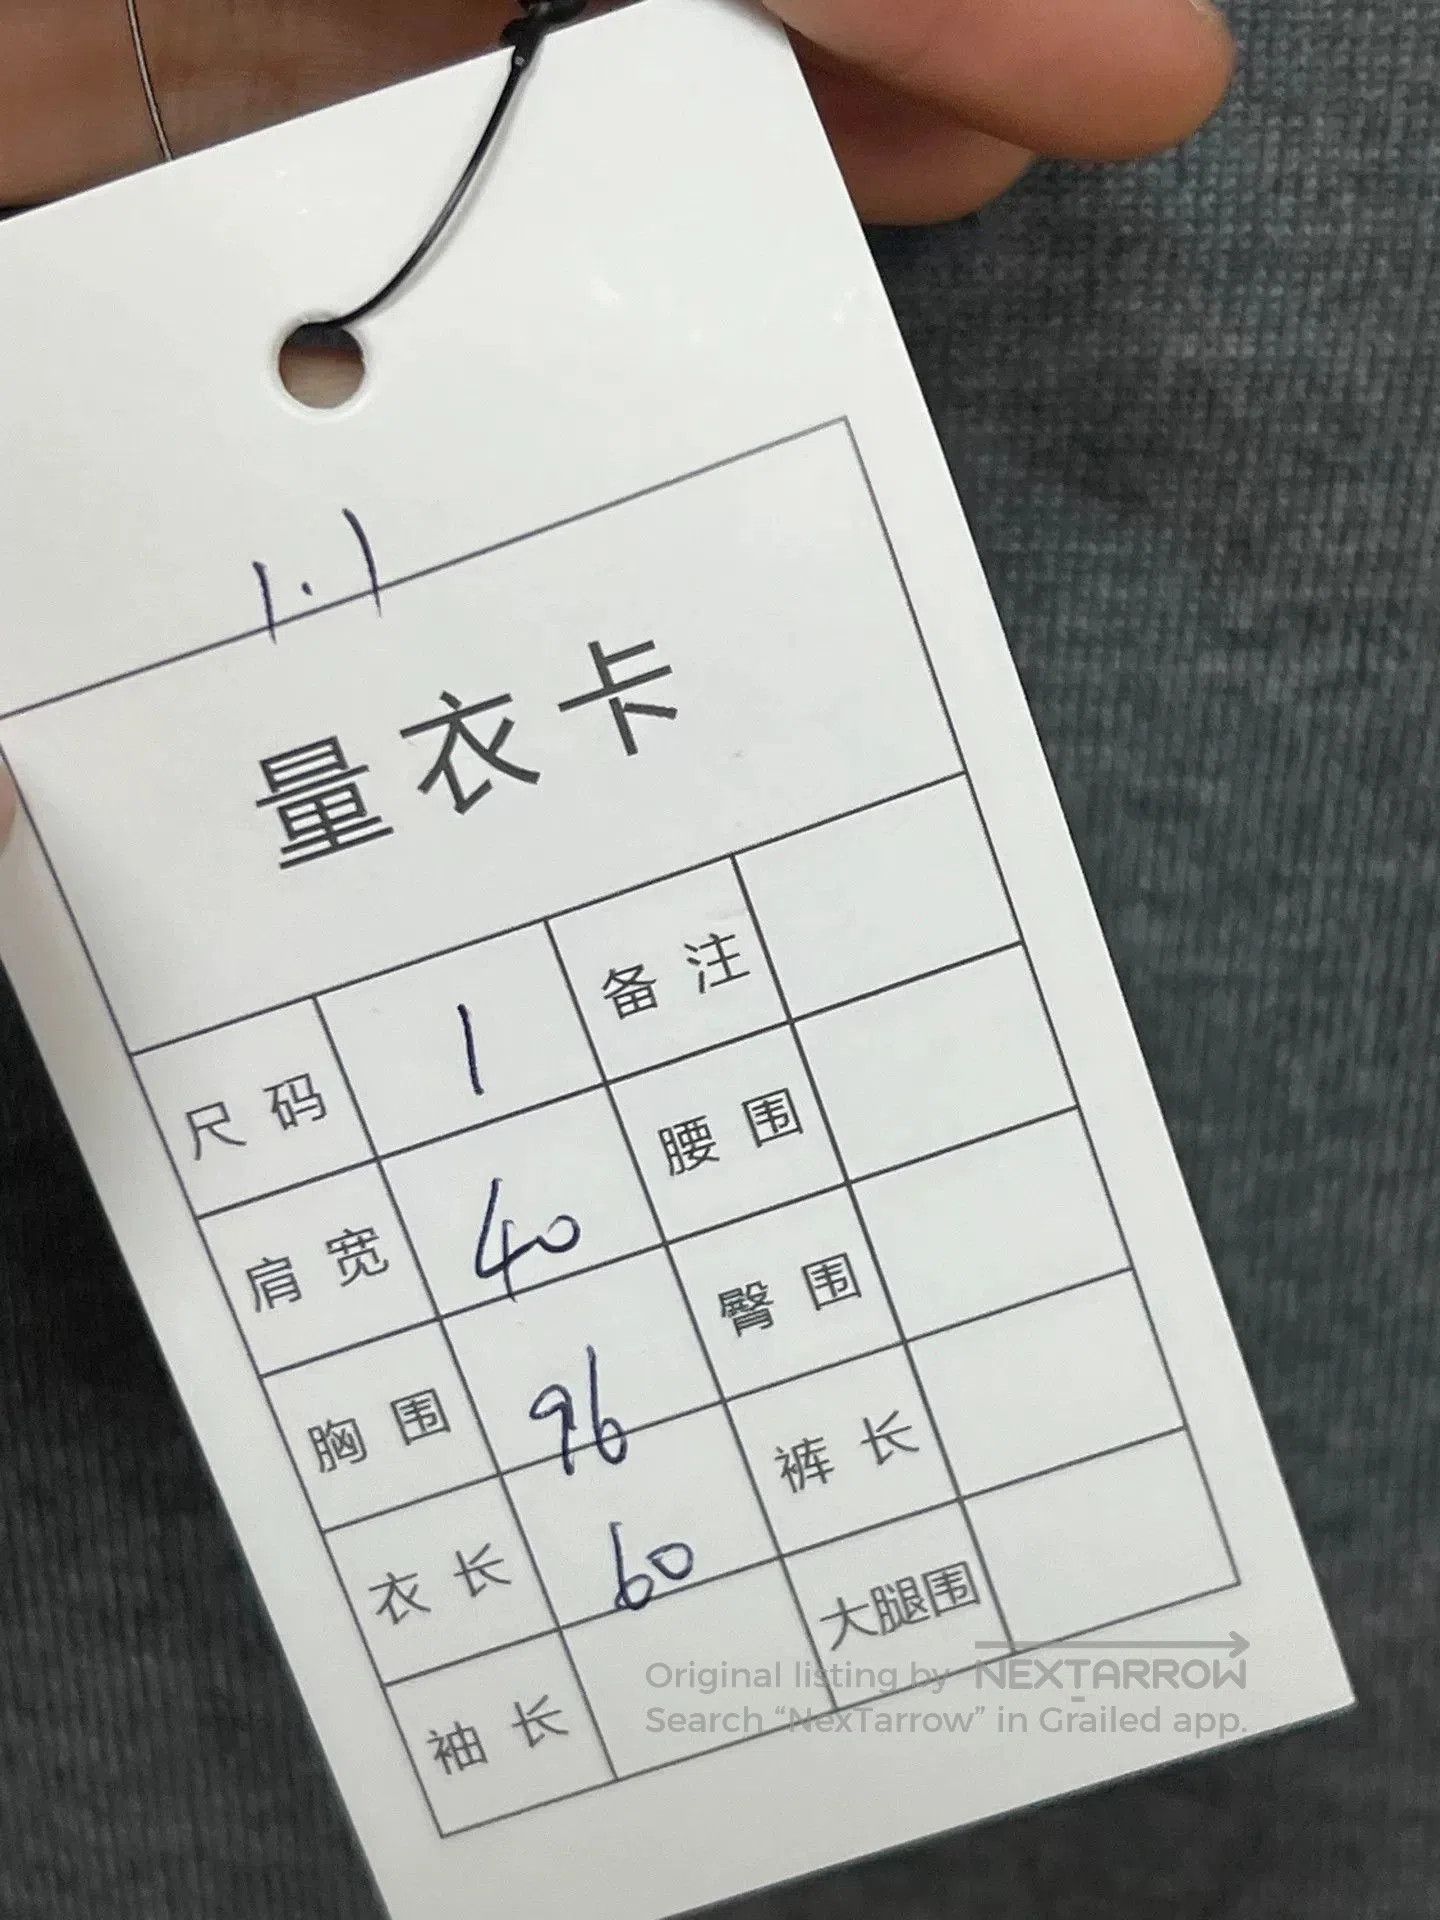 1.1
量衣卡
尺码 1 备注
肩宽 40 腰围
胸围 96 臀围
衣长 60 裤长
袖长 大腿围
Original listing by NEXTARROW
Search “NexTarrow” in Grailed app.